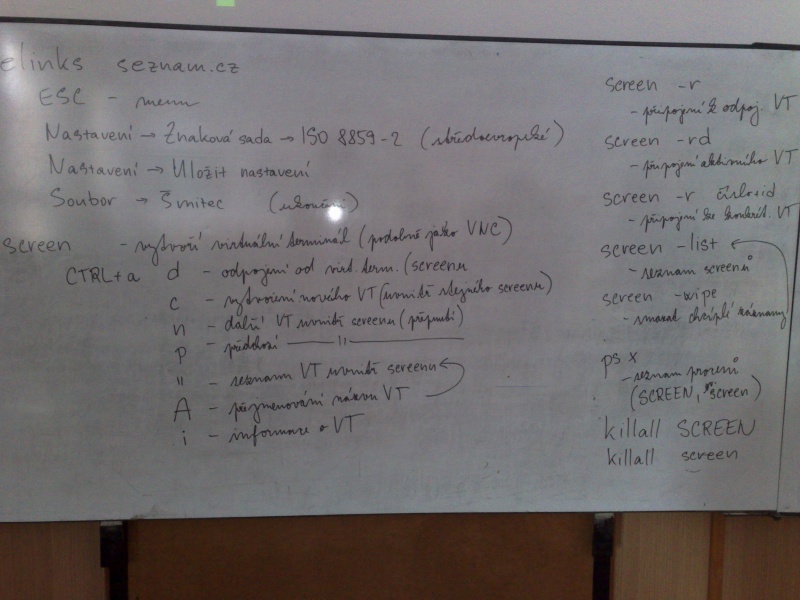 elinks seznam.cz
ESC - menu
Nastavení → Znaková sada → ISO 8859-2 (středoevropské)
Nastavení → Uložit nastavení
Soubor → Šmitec (ukončení)
screen - vytvoří virtuální terminál (podobně jako VNC)
CTRL+a d - odpojení od virt. term. (screenu
c - vytvoření nového VT (uvnitř stejného screenu)
n - další VT uvnitř screenu (přepnutí)
p - předchozí — " —
" - seznam VT uvnitř screenu
A - přejmenování názvu VT
i - informace o VT
screen -r
- připojení k odpoj. VT
screen -rd
- připojení aktivního VT
screen -r číslo+id
- připojení ke konkrét. VT
screen -list
- seznam screenů
screen -wipe
- smazat chcíplé záznamy
ps x
- seznam procesů
(SCREEN, screen)
killall SCREEN
killall screen